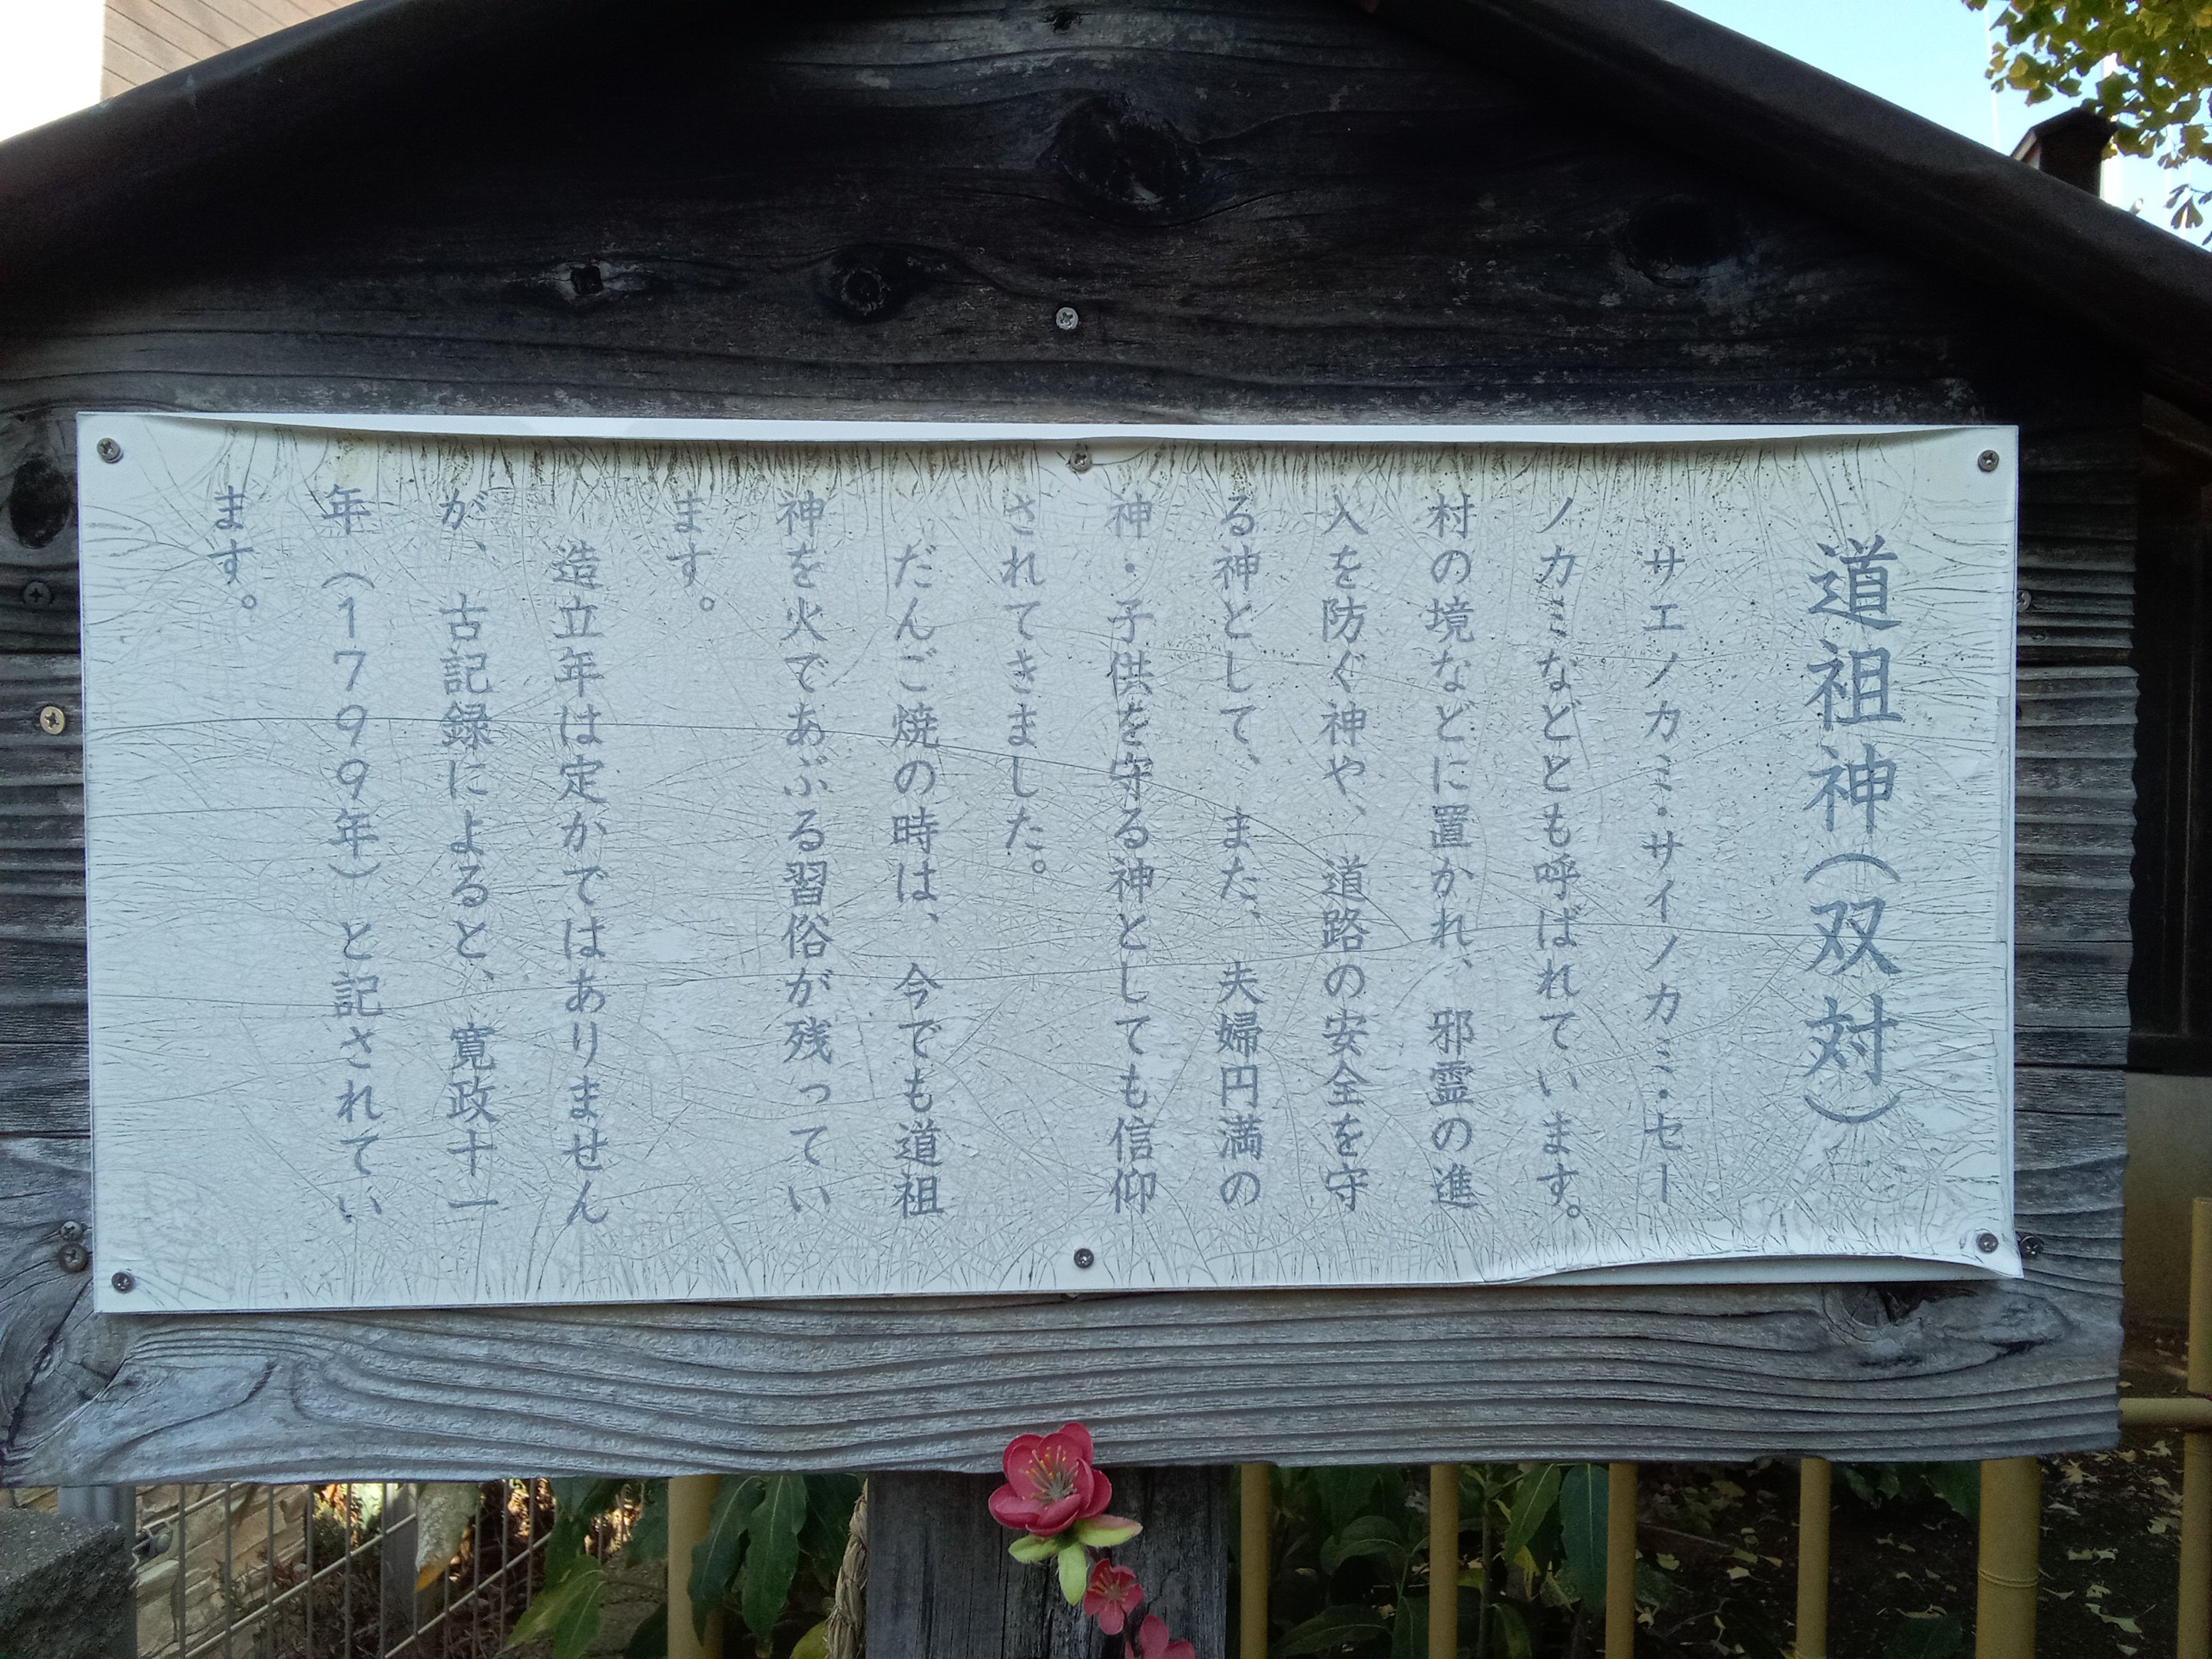 道祖神（双対）
サエノカミ・サイノカミ・セー
ノカミなどとも呼ばれています。
村の境などに置かれ、邪霊の進
入を防ぐ神や、道路の安全を守
る神として、また、夫婦円満の
神・子供を守る神としても信仰
されてきました。
だんご焼の時は、今でも道祖
神を火であぶる習俗が残ってい
ます。
造立年は定かではありません
が、古記録によると、寛政十一
年（１７９９年）と記されてい
ます。